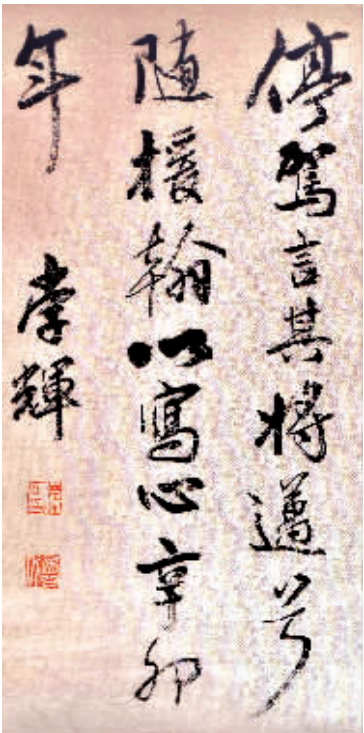 停駕言其將邁兮
随援翰以寫心辛卯
年 輝